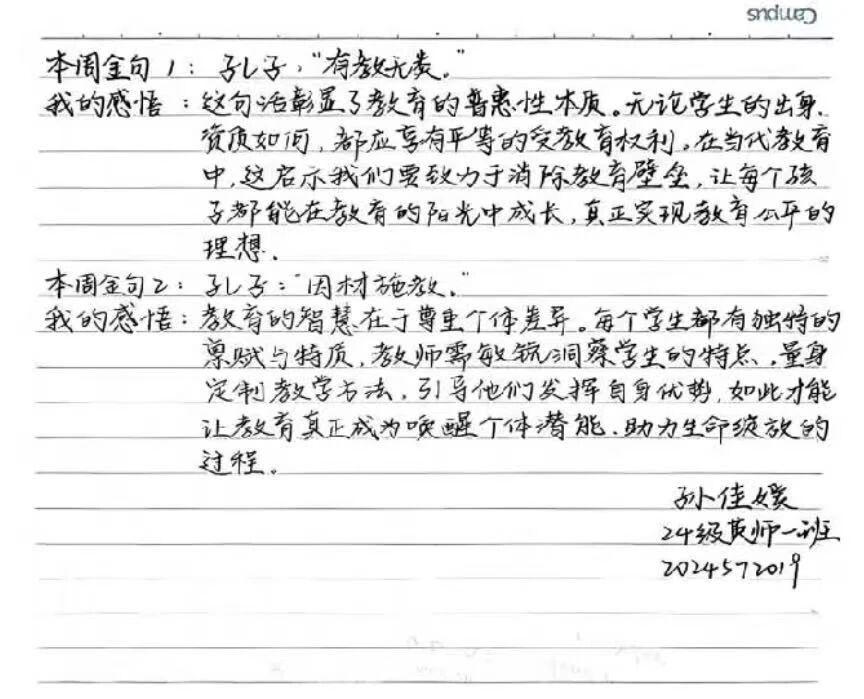 Campus
本周金句1：孔子："有教无类。"
我的感悟：这句话彰显了教育的普惠性本质。无论学生的出身、
资质如何，都应享有平等的受教育权利。在当代教育
中，这启示我们要致力于消除教育壁垒，让每个孩
子都能在教育的阳光中成长，真正实现教育公平的
理想。
本周金句2：孔子："因材施教。"
我的感悟：教育的智慧在于尊重个体差异。每个学生都有独特的
禀赋与特质，教师需敏锐洞察学生的特点，量身
定制教学方法，引导他们发挥自身优势，如此才能
让教育真正成为唤醒个体潜能、助力生命绽放的
过程。
孙佳媛
24级英师一班
2024572019